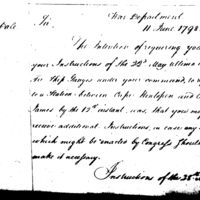 War Department
Sir. 11 June 1798
The Intention of requiring you
your Instructions of the 22d May Ultimo
Ship Ganges under your command, to
a Station between Cape Henlopen and
James by the 12th instant, was, that you
receive additional Instructions, in case any
which might be enacted by Congress should
make it necessary.
Instructions of the 28th